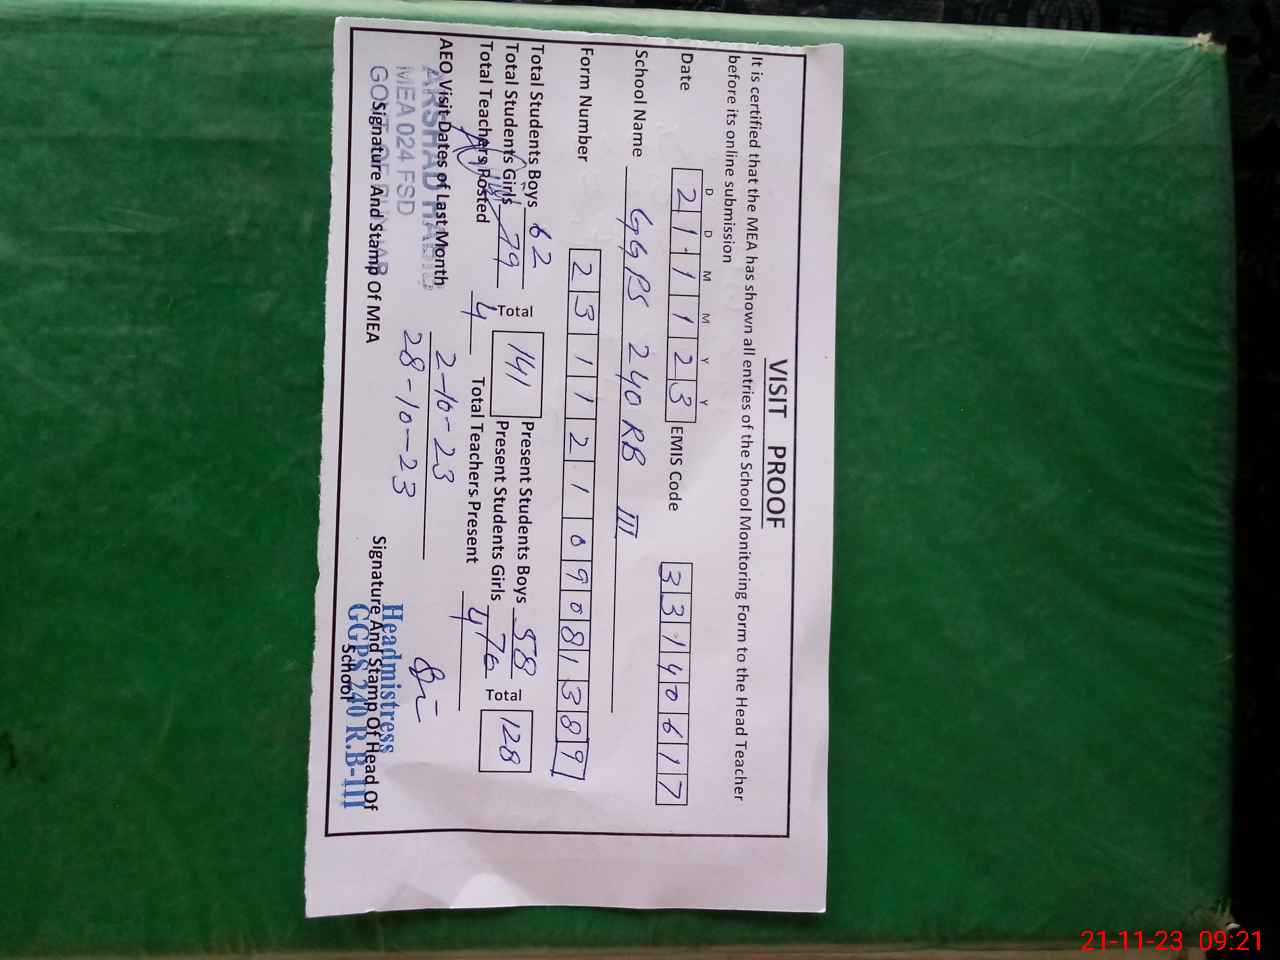 VISIT PROOF
It is certified that the MEA has shown all entries of the School Monitoring Form to the Head Teacher
before its online submission
D D M M Y Y
Date 2 1 1 1 2 3 EMIS Code 3 3 1 4 0 6 1 7
School Name GGPS 240 RB III
Form Number 2 3 1 1 2 1 0 9 0 8 1 3 8 9
Total Students Boys 62 Present Students Boys 58
Total Students Girls 79 Total 141 Present Students Girls 70 Total 128
Total Teachers Posted 4 Total Teachers Present 4
AEO Visit Dates of Last Month 2-10-23
28-10-23
ARSHAD HABIB
MEA 024 FSD
GOVT OF PUNJAB
Signature And Stamp Of MEA
Headmistress
GGPS 240 R.B-III
Signature And Stamp Of Head Of
School
21-11-23 09:21